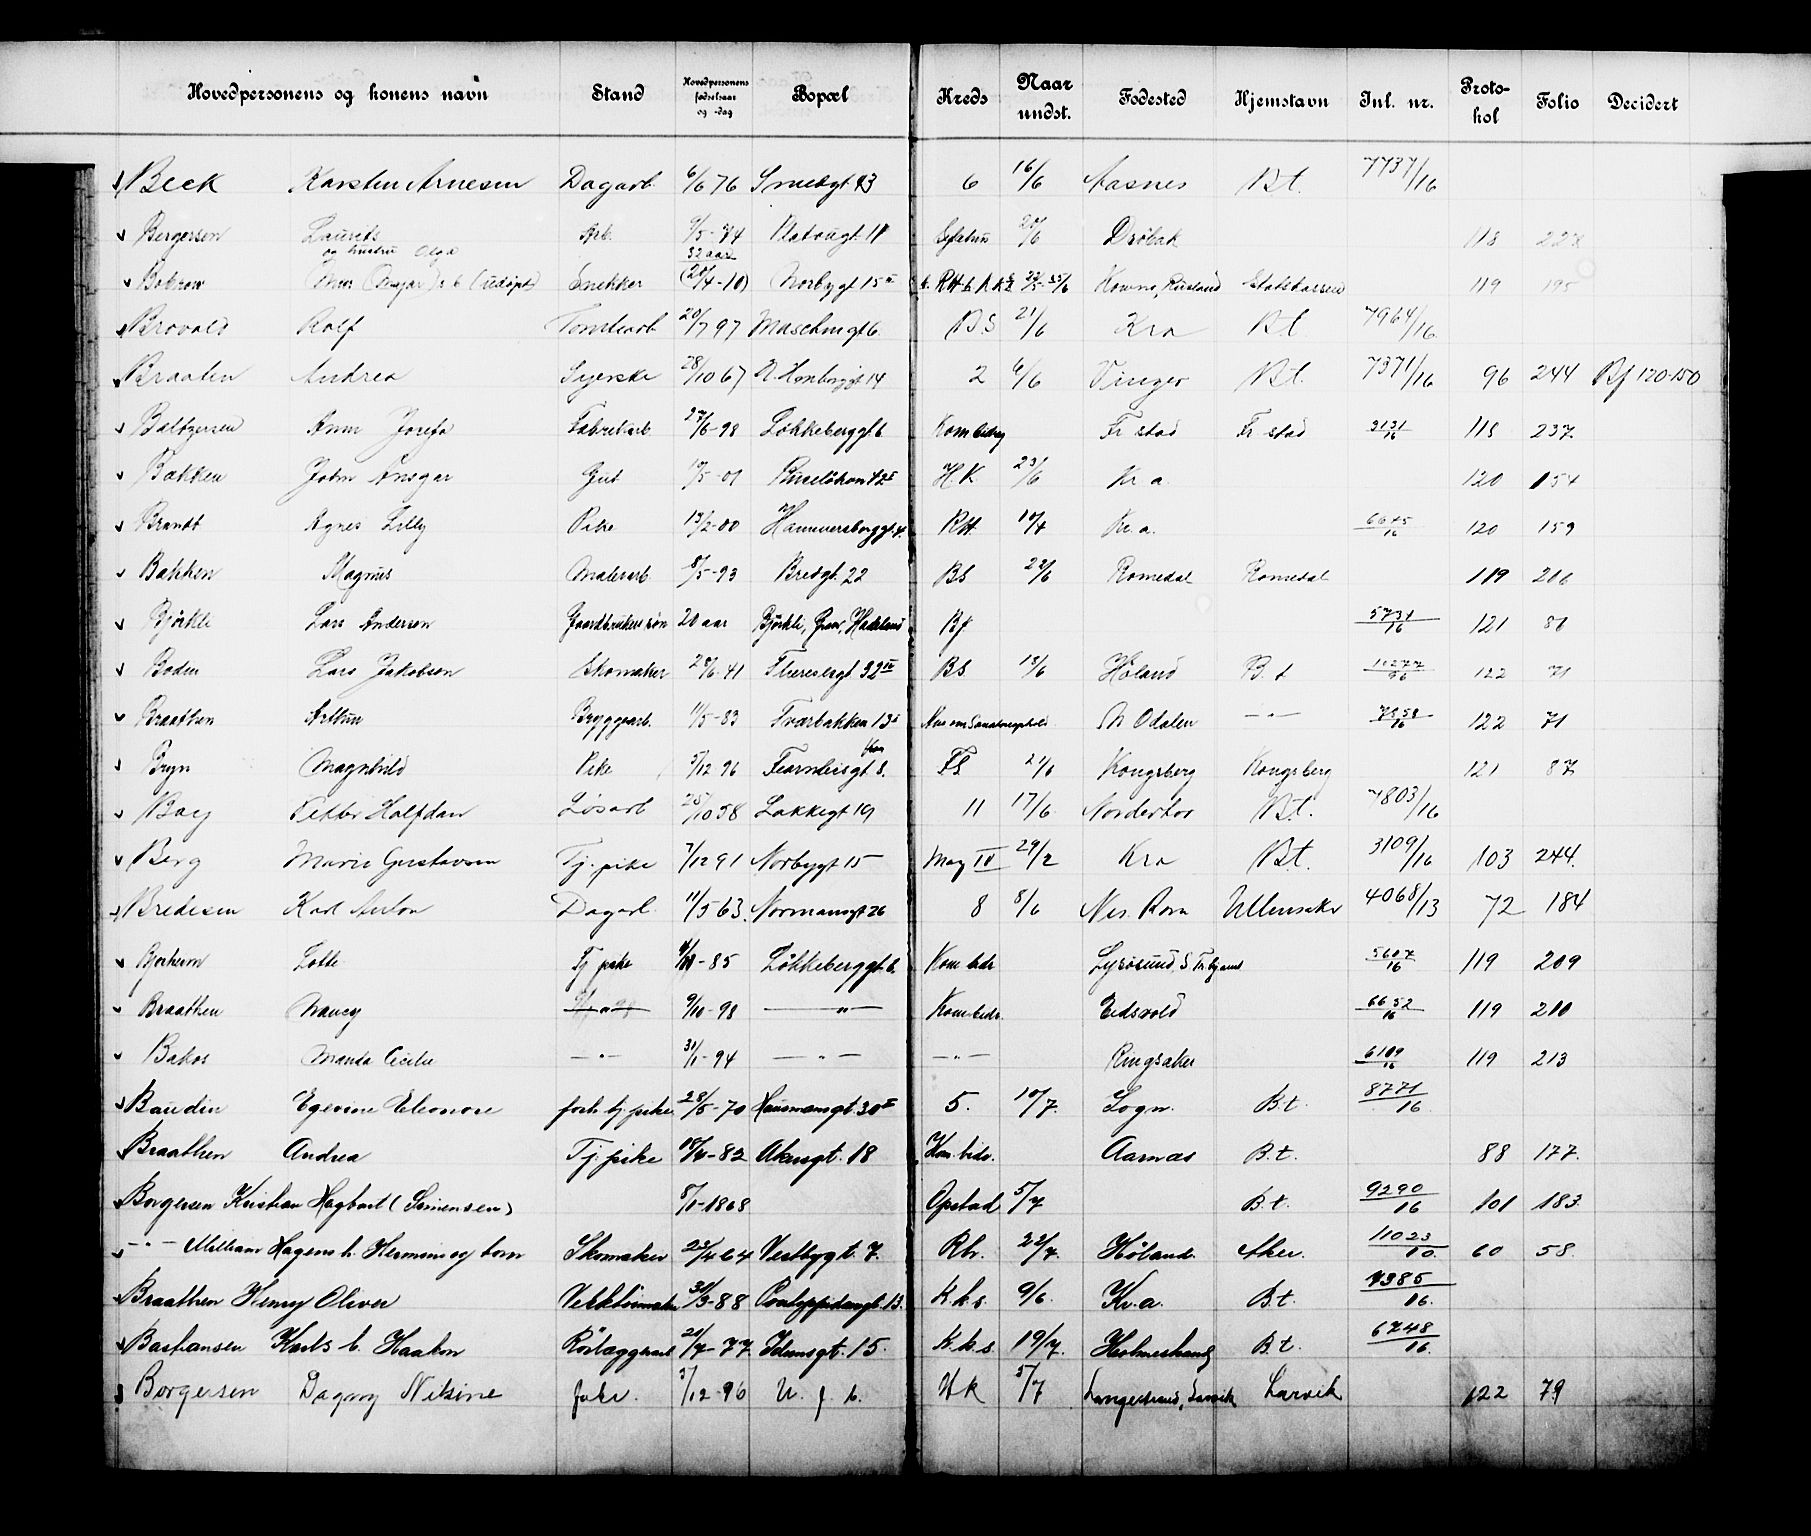 Hovedpersonens og konens navn Stand Hovedpersonens fødselsaar og -dag Bopæl Kreds Naar undst. Fødested Hjemstavn Inl. nr. Proto-kol Folio Decidert
Beck Karsten Arnesen Dagarb. 6/6 76 Smedgt 43 6 16/6 Aasnes B.t. 7737/16
Bergersen Laurits Arb. 9/5-74 20/6 Drøbak 118
og hustru Olga 32 aar
Snekker (20/4-10) Norbygt 15 II Kowno, Rusland Statskassen 119 195
Brovald Rolf Tomtearb 20/7 97 Maschingt 6 B.S 21/6 Kra B.t. 7964/16
Braaten Andrea Syerske 28/10 67 N. Hambroggt 14 2 6/6 Vinger B.t. 7371/16 96 244 Bf 120-150
Baltzersen Anna Josefa Fabrikarb. 27/6-98 Løkkeberggt 6 Kom bidrag Fr stad Fr stad 3131/16 118 237
Bakken John Ansgar Gut 19/5-01 H.K 23/6 Kr a. 120 154
Brandt Agnes Lilly Pike 13/2-00 Hammersborggt 4. RH. 10/4 Kr. a. 6645/16 120 159
Bakken Magnus Malerarb. 8/5-93 Bredgt. 22 BS 22/6 Romedal Romedal 119 206
Bjørkli Lars Andersen Gaardbrukersøn 20 aar Bjørkli, Gran, Hadeland Bf 5731/16 121 81
Bodin Lars Jakobsen Skomaker 28/6-41 Theresesgt. 32 IV BS 13/6 Høland B.t 122 71
Braathen Arthur Bryggearb. 11/5-83 Tværbakken 13 N Odalen — " — 7858/16 122 71
Bryn Magnhild Pike 5/12 96 Fearnleysgt 8. FS 21/6 Kongsberg Kongsberg 121 87
Boey Petter Halfdan Løsarb 25/10 58 Lakkegt 19 11 17/6 Norderhov B.t. 7803/16
Berg Marie Gustavsen Tj. pike 7/12 91 Norbygt 15 Mag IV 29/2 Kra B.t. 3109/16 103 244.
Bredesen Karl Anton Dagarb. 11/5 63. Normansgt 26 8 8/6 Nes. Rom Ullensaker 4068/13 72 184
Lotte Tj pike -85 Løkkeberggt. 6. Kom bidr 5607/16 119 209
Braathen Nancy 9/10-98 — " — Kom bidr. Eidsvold 6652/16 119 210
Bakos Manda Cecilie — " — 31/1-94 — " — — " — Ringsaker 6109/16 119 213
Baudin Egerine Eleonore forh. tj. pike 28/5-70 Hausmansgt. 30 II 5. 10/7. Sogn. B.t. 8771/16
Braathen Andrea Tj. pike 18/4-82 Akersgt. 18 Kom. bidr. Aarnæs B.t. 88 177.
Borgersen Kristian Hagbart (Simensen) 5/1-1868 Opstad 5/7 B.t. 9290/16 101 183.
— " — Milliam Hagens h. Hermine og barn Skomaker 23/4 64 Vestbygt. 7. Rbr. 22/7. Høland. Aker. 11023/10. 60 58.
Braathen Henry Oliver 31/3-88 Pontoppidangt. 13. K.k.s. 9/6. Kr.a. B.t. 7385/16.
Bastiansen Karls h. Haakon Rørlæggerarb 20/7-77. Idunsgt. 15. K.k.s 19/7. Holmestrand B.t. 6748/16.
Borgersen Dagny Nilsine frk. 5/12-96 U. f. b. HK 5/7 Langestrand, Larvik Larvik 122 79